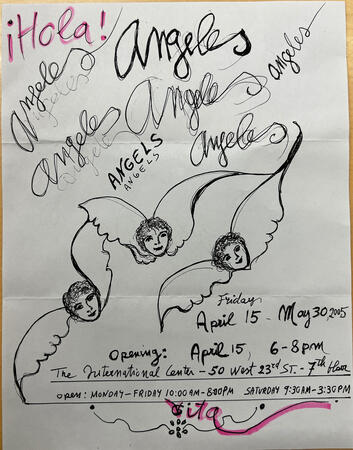 ¡Hola!
Angeles
Angeles
Angeles
Angeles
Angeles
Angeles
Angeles
Angeles
ANGELS
ANGELS
Friday
April 15 - May 30, 2005
Opening: April 15, 6-8pm
The International Center - 50 West 23rd St. - 7th floor
open: MONDAY-FRIDAY 10:00AM-8:00PM SATURDAY 9:30AM-3:30PM
Sita